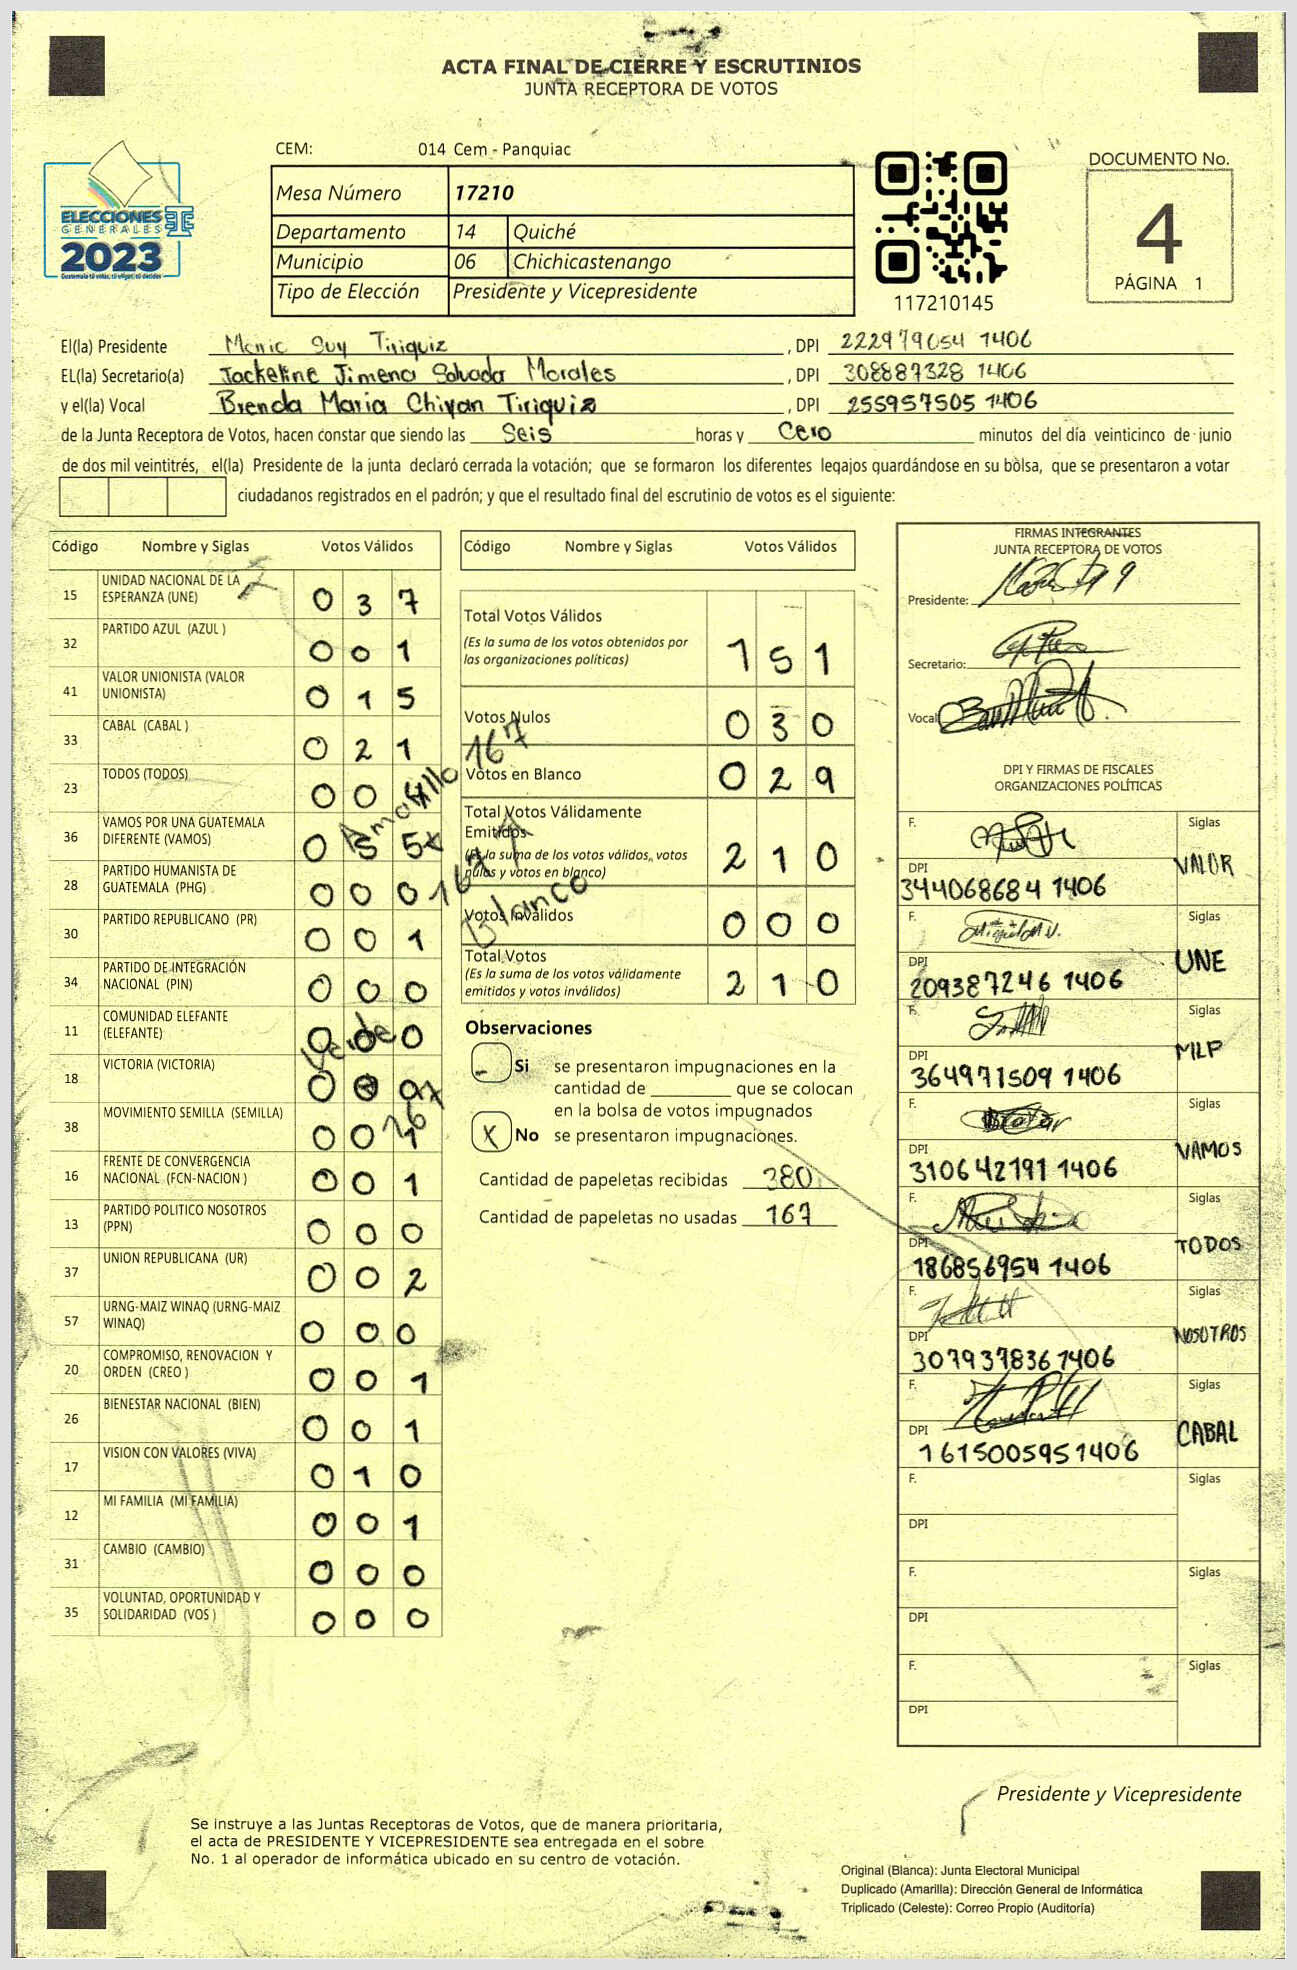 ACTA FINAL DE CIERRE Y ESCRUTINIOS
JUNTA RECEPTORA DE VOTOS
CEM: 014 Cem - Panquiac
ELECCIONES
GENERALES
2023
Guatemala tú votas, tú eliges, tú decides
Mesa Número 17210
Departamento 14 Quiché
Municipio 06 Chichicastenango
Tipo de Elección Presidente y Vicepresidente
117210145
DOCUMENTO No.
4
PÁGINA 1
El(la) Presidente Suy Tiriquiz , DPI 222979654 1406
EL(la) Secretario(a) Jackeline Jimena Salvada Morales , DPI 308887328 1406
y el(la) Vocal Brenda Maria Chivan Tiriquiz , DPI 255957505 1406
de la Junta Receptora de Votos, hacen constar que siendo las Seis horas y Cero minutos del día veinticinco de junio
de dos mil veintitrés, el(la) Presidente de la junta declaró cerrada la votación; que se formaron los diferentes legajos guardándose en su bolsa, que se presentaron a votar
ciudadanos registrados en el padrón; y que el resultado final del escrutinio de votos es el siguiente:
Código Nombre y Siglas Votos Válidos
15 UNIDAD NACIONAL DE LA ESPERANZA (UNE) 0 3 7
32 PARTIDO AZUL (AZUL ) 0 0 1
41 VALOR UNIONISTA (VALOR UNIONISTA) 0 1 5
33 CABAL (CABAL ) 0 2 1
23 TODOS (TODOS) 0 0 4
36 VAMOS POR UNA GUATEMALA DIFERENTE (VAMOS) 0 5 5
28 PARTIDO HUMANISTA DE GUATEMALA (PHG) 0 0 0
30 PARTIDO REPUBLICANO (PR) 0 0 1
34 PARTIDO DE INTEGRACIÓN NACIONAL (PIN) 0 0 0
11 COMUNIDAD ELEFANTE (ELEFANTE) 0 0 0
18 VICTORIA (VICTORIA) 0 0 0
38 MOVIMIENTO SEMILLA (SEMILLA) 0 0 1
16 FRENTE DE CONVERGENCIA NACIONAL (FCN-NACION ) 0 0 1
13 PARTIDO POLITICO NOSOTROS (PPN) 0 0 0
37 UNION REPUBLICANA (UR) 0 0 2
57 URNG-MAIZ WINAQ (URNG-MAIZ WINAQ) 0 0 0
20 COMPROMISO, RENOVACION Y ORDEN (CREO ) 0 0 1
26 BIENESTAR NACIONAL (BIEN) 0 0 1
17 VISION CON VALORES (VIVA) 0 1 0
12 MI FAMILIA (MI FAMILIA) 0 0 1
31 CAMBIO (CAMBIO) 0 0 0
35 VOLUNTAD, OPORTUNIDAD Y SOLIDARIDAD (VOS ) 0 0 0
Amarillo 167
Blanco 167
Verde 167
Código Nombre y Siglas Votos Válidos
Total Votos Válidos 1 5 1
(Es la suma de los votos obtenidos por
las organizaciones políticas)
Votos Nulos 0 3 0
Votos en Blanco 0 2 9
Total Votos Válidamente
Emitidos 2 1 0
(Es la suma de los votos válidos, votos
nulos y votos en blanco)
Votos Inválidos 0 0 0
Total Votos 2 1 0
(Es la suma de los votos válidamente
emitidos y votos inválidos)
Observaciones
Si se presentaron impugnaciones en la
cantidad de ________ que se colocan
en la bolsa de votos impugnados
X No se presentaron impugnaciones.
Cantidad de papeletas recibidas 380
Cantidad de papeletas no usadas 167
FIRMAS INTEGRANTES
JUNTA RECEPTORA DE VOTOS
Presidente:
Secretario:
Vocal
DPI Y FIRMAS DE FISCALES
ORGANIZACIONES POLÍTICAS
F. Siglas
DPI 344068684 1406 VALOR
F. Siglas
DPI 209387246 1406 UNE
F. Siglas
DPI 364971509 1406 MLP
F. Siglas
DPI 310642191 1406 VAMOS
F. Siglas
DPI 186856954 1406 TODOS
F. Siglas
DPI 307937836 1406 NOSOTROS
F. Siglas
DPI 161500595 1406 CABAL
F. Siglas
DPI
F. Siglas
DPI
F. Siglas
DPI
Presidente y Vicepresidente
Se instruye a las Juntas Receptoras de Votos, que de manera prioritaria,
el acta de PRESIDENTE Y VICEPRESIDENTE sea entregada en el sobre
No. 1 al operador de informática ubicado en su centro de votación.
Original (Blanca): Junta Electoral Municipal
Duplicado (Amarilla): Dirección General de Informática
Triplicado (Celeste): Correo Propio (Auditoría)